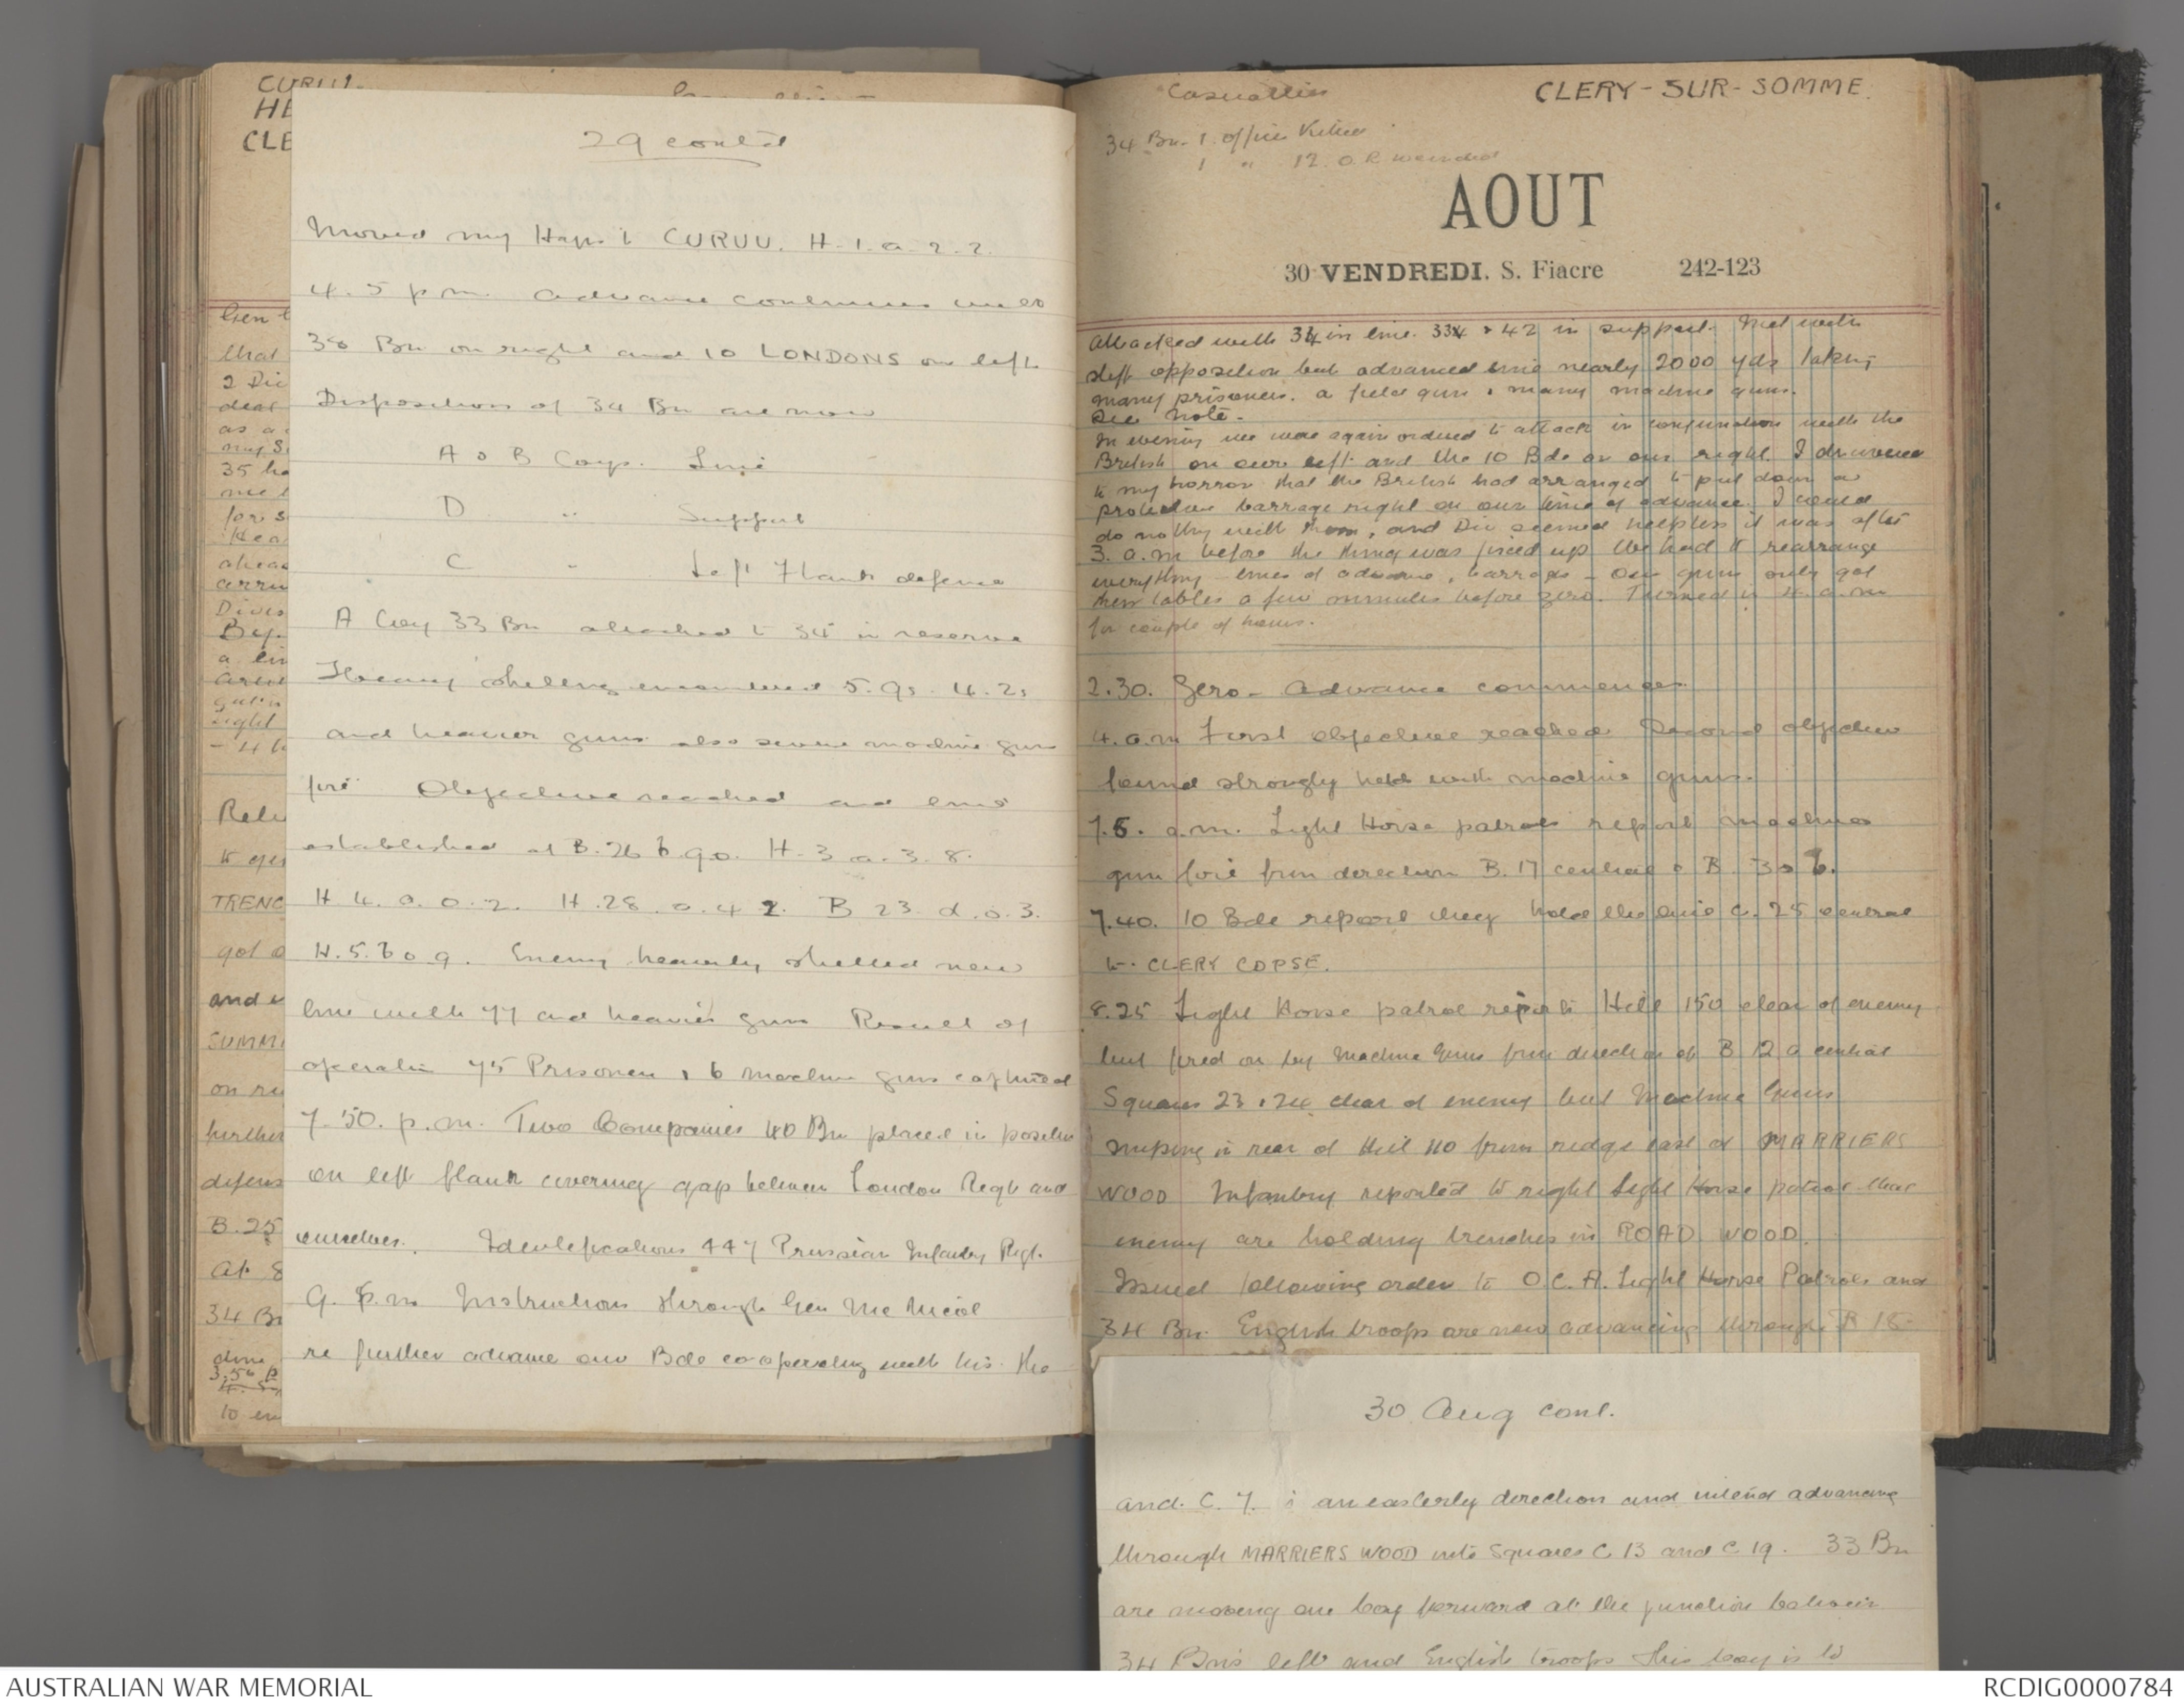 CURLU
HE
CLE
29 contd
Moved my Hqrs to CURLU. H.1.a.2.2.
4.5 pm advance continues with
38 Bn on right and 10 LONDONS on left
Dispositions of 34 Bn are now
A & B Coys. Line
D " Support
C " Left Flank defence
A Coy 33 Bn attached to 34 in reserve
Heavy shelling encountered 5.9s. 4.2s
and heavier guns also severe machine gun
fire Objective reached and line
established at B.26.b.9.0. H.3.a.3.8.
H.4.a.0.2. H.28.a.4.2. B 23.d.0.3.
H.5.b.0.9. Enemy heavily shelled new
line with 77 and heavier guns Result of
operation 75 Prisoners & 6 machine guns captured
7.50. p.m. Two Companies 40 Bn placed in position
on left flank covering gap between London Regt and
ourselves. Identifications 447 Prussian Infantry Regt.
9. p.m Instructions through Gen McNicol
re further advance our Bde co-operating with his. The
Gen t
that
2 Div
deal
as a
my S
35 ha
me t
for s
Hea
ahead
arriv
Divis
a lin
light
Rele
to get
TRENC
got o
and
SUMM
on ri
further
defens
B.25
At 8
34 Bn
done
3.50 p
to en
Casualties CLERY-SUR-SOMME.
34 Bn. 1. officer Killed
1 " 12. O.R. wounded
AOUT
30 VENDREDI. S. Fiacre 242-123
Attacked with 34 in line. 33 & 42 in support. Met with
stiff opposition but advanced line nearly 2000 yds taking
many prisoners. a field gun & many machine guns.
See note.
In evening we were again ordered to attack in conjunction with the
British on our left and the 10 Bde on our right. I discovered
to my horror that the British had arranged to put down a
protective barrage right on our line of advance. I could
do nothing with them, and Div seemed helpless it was after
3. a.m before the thing was fixed up We had to rearrange
everything - lines of advance, barrage - Our guns only got
their tables a few minutes before zero. Turned in 4. a.m
for couple of hours.
2.30. Zero - Advance commences
4. a.m First objective reached Second objective
found strongly held with machine guns.
7.5. a.m. Light Horse patrols report machine
gun fire from direction B.17 central & B.30 b.
7.40. 10 Bde report they hold the line C.25 central
to CLERY COPSE.
8.25 Light Horse patrol reports Hill 150 clear of enemy
but fired on by Machine Guns from direction of B 12 a central
Squares 23 & 24 clear of enemy but Machine Guns
sniping in rear of Hill 110 from ridge east of MARRIERS
WOOD Infantry reported to right Light Horse patrol that
enemy are holding trenches in ROAD WOOD.
Issued following order to O.C. A. Light Horse Patrols and
34 Bn. English troops are now advancing through B 18
30 Aug cont.
and. C. 7. in an easterly direction and intend advancing
through MARRIERS WOOD into Squares C 13 and C 19. 33 Bn
are moving one Coy forward at the junction between
34 Bn's left and English troops This Coy is to
AUSTRALIAN WAR MEMORIAL
RCDIG0000784